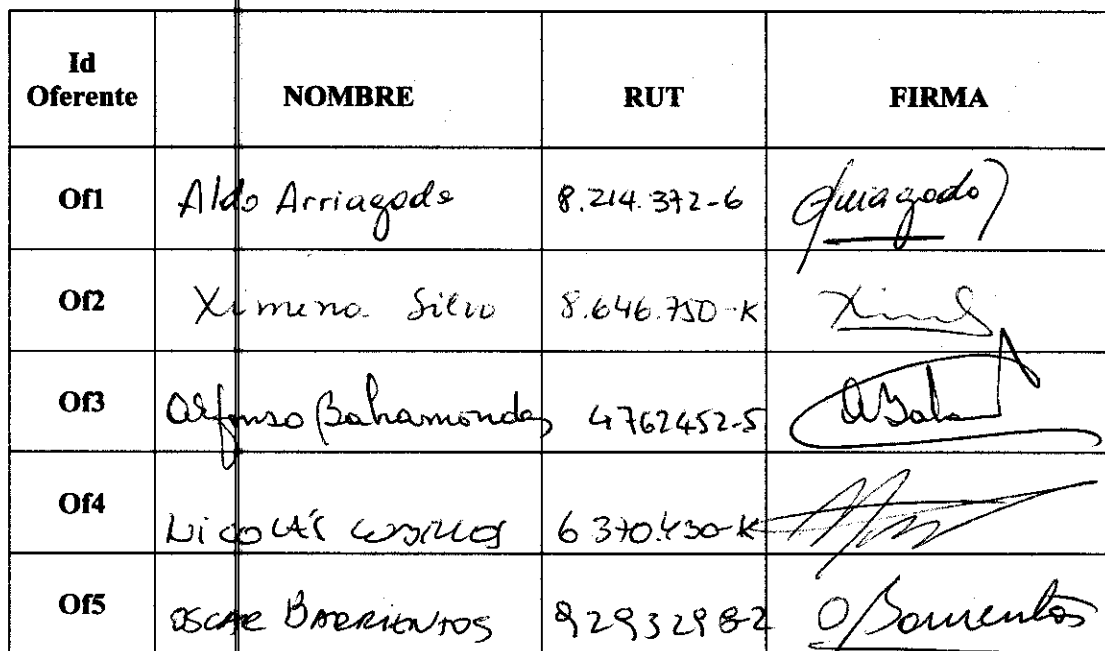 Id Oferente NOMBRE RUT FIRMA
Of1 Aldo Arriagada 8.214.372-6 Arriagada
Of2 Ximena Silva 8.646.750-K
Of3 Alfonso Bahamondes 4762452-5
Of4 Nicolás 6370.430-K
Of5 OSCAR BARRIENTOS 9293298-2 OBarrientos